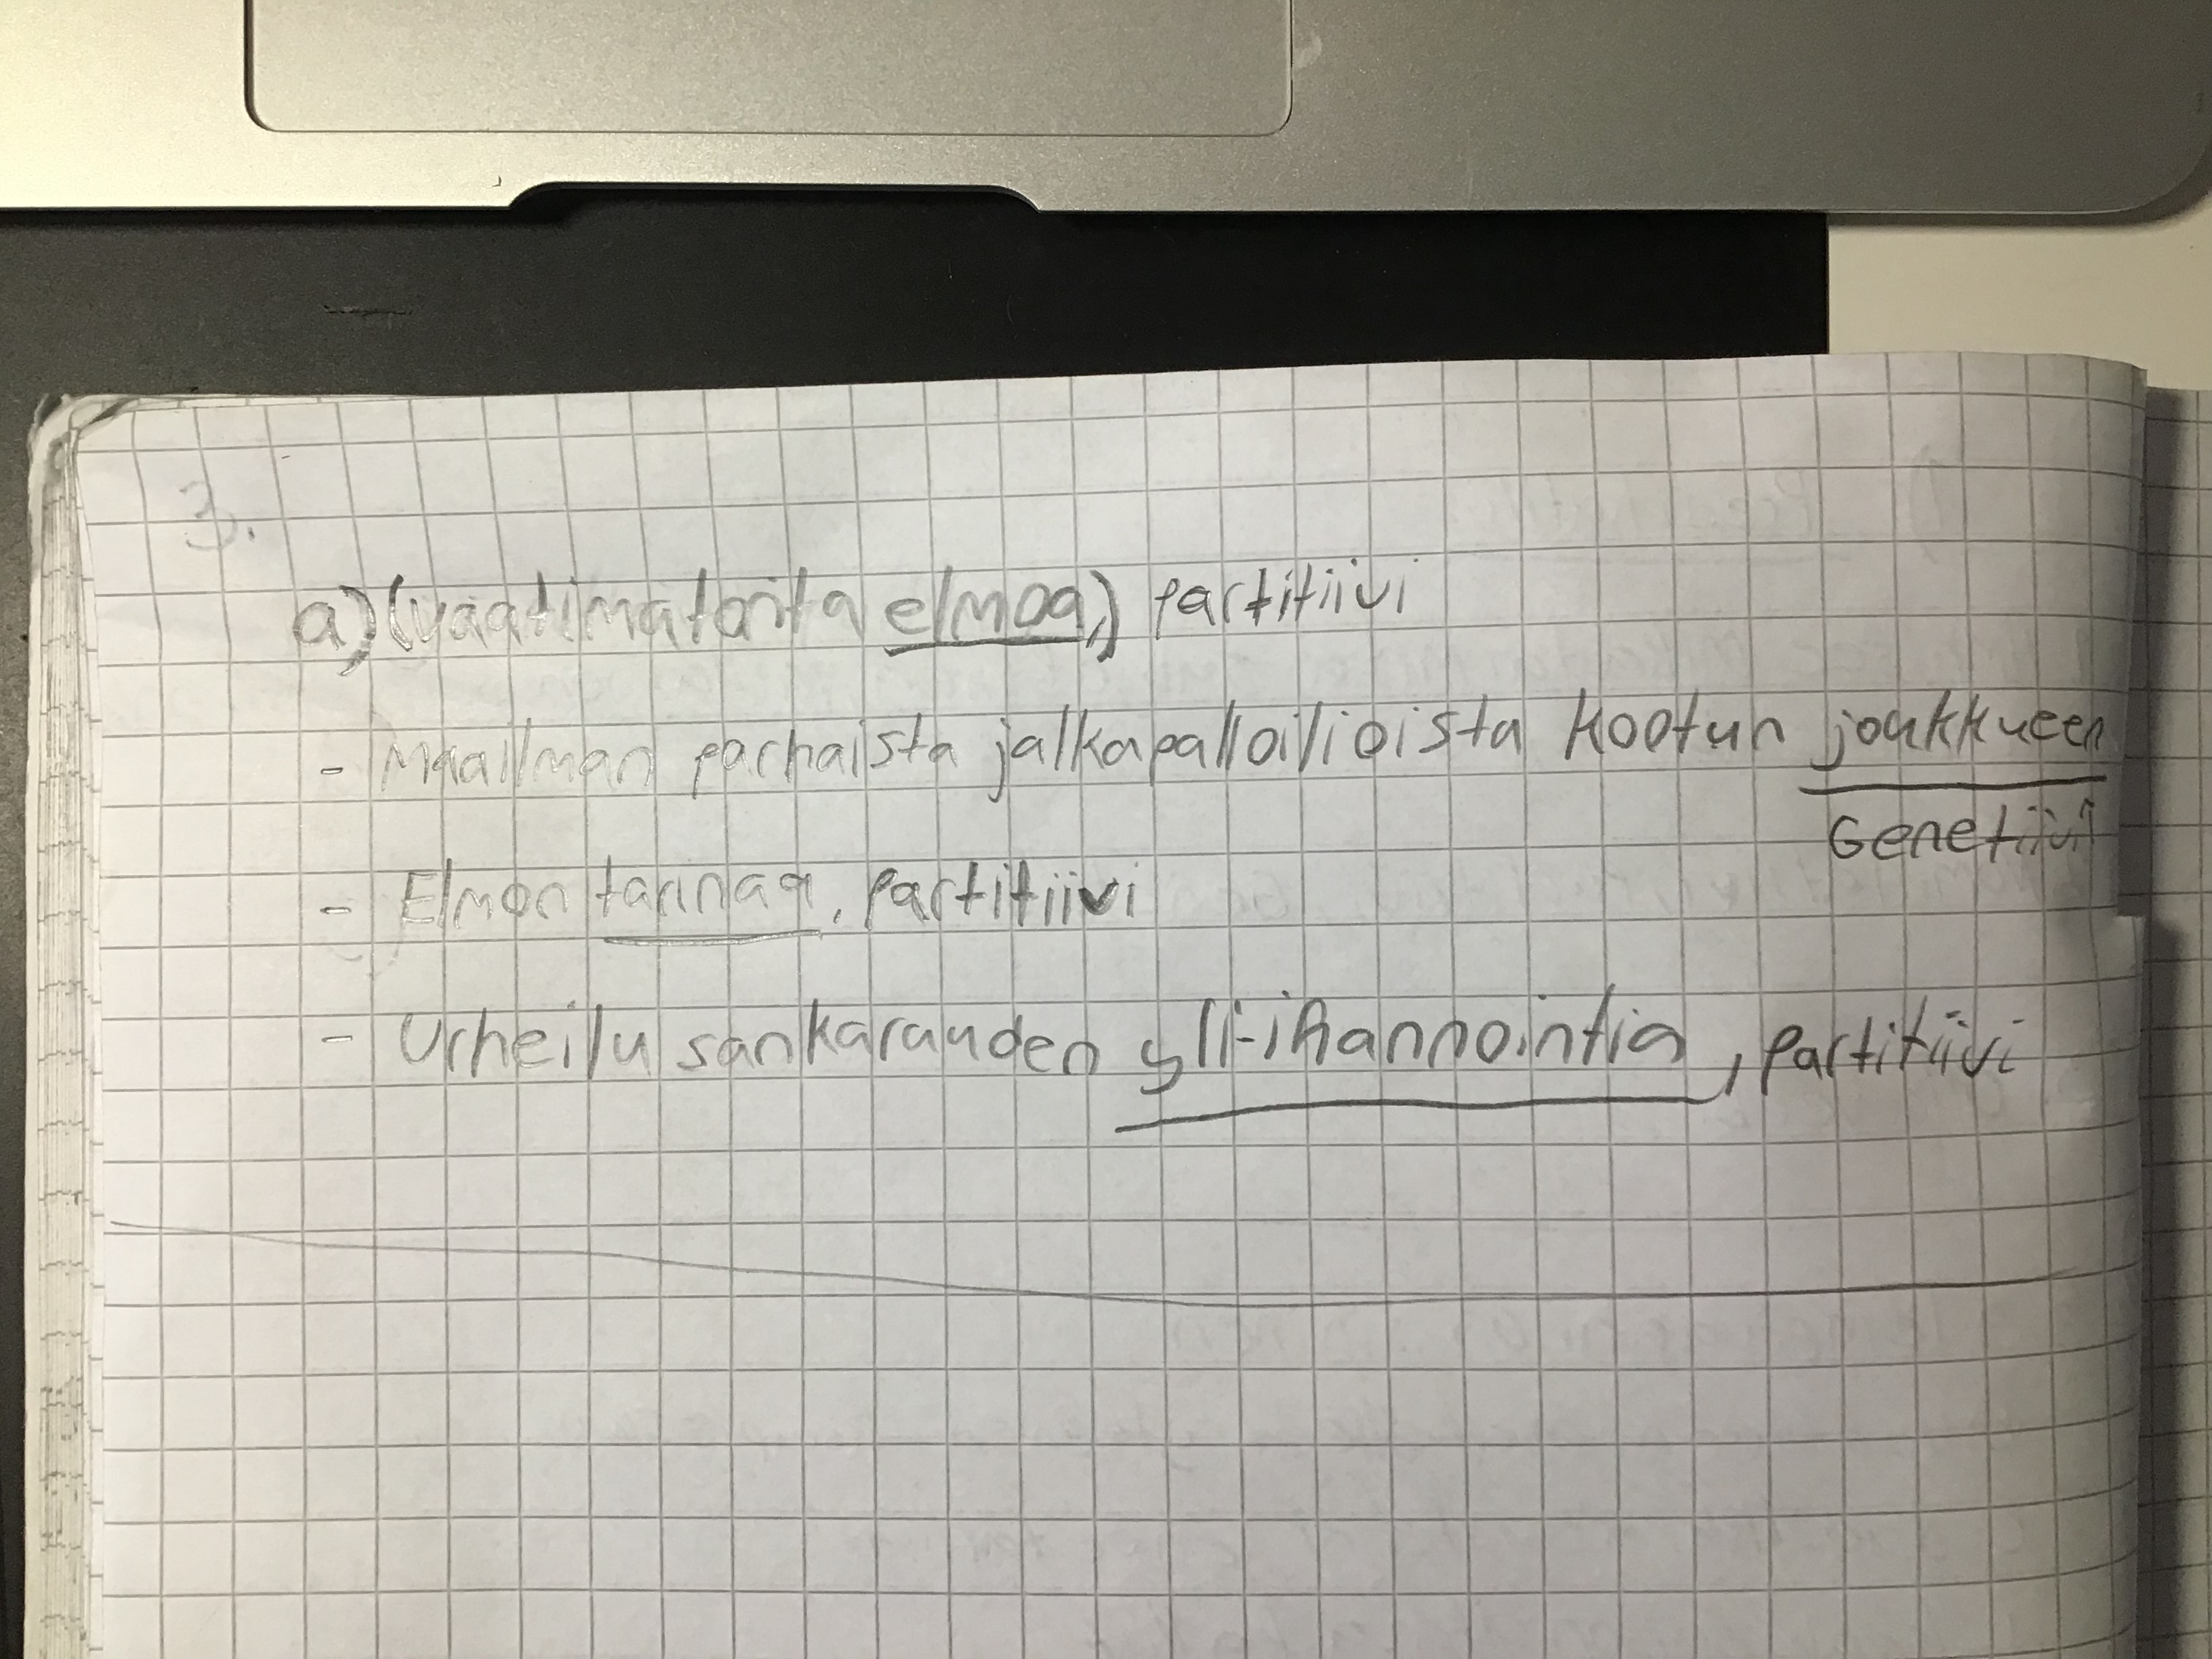 3.
a) (vaatimatonta elmoa,) partitiivi
- Maailman parhaista jalkapalloilioista kootun joukkueen
Genetiivi
- Elmon tarinaa, partitiivi
- Urheilu sankarauden yli-ihannointia, partitiivi